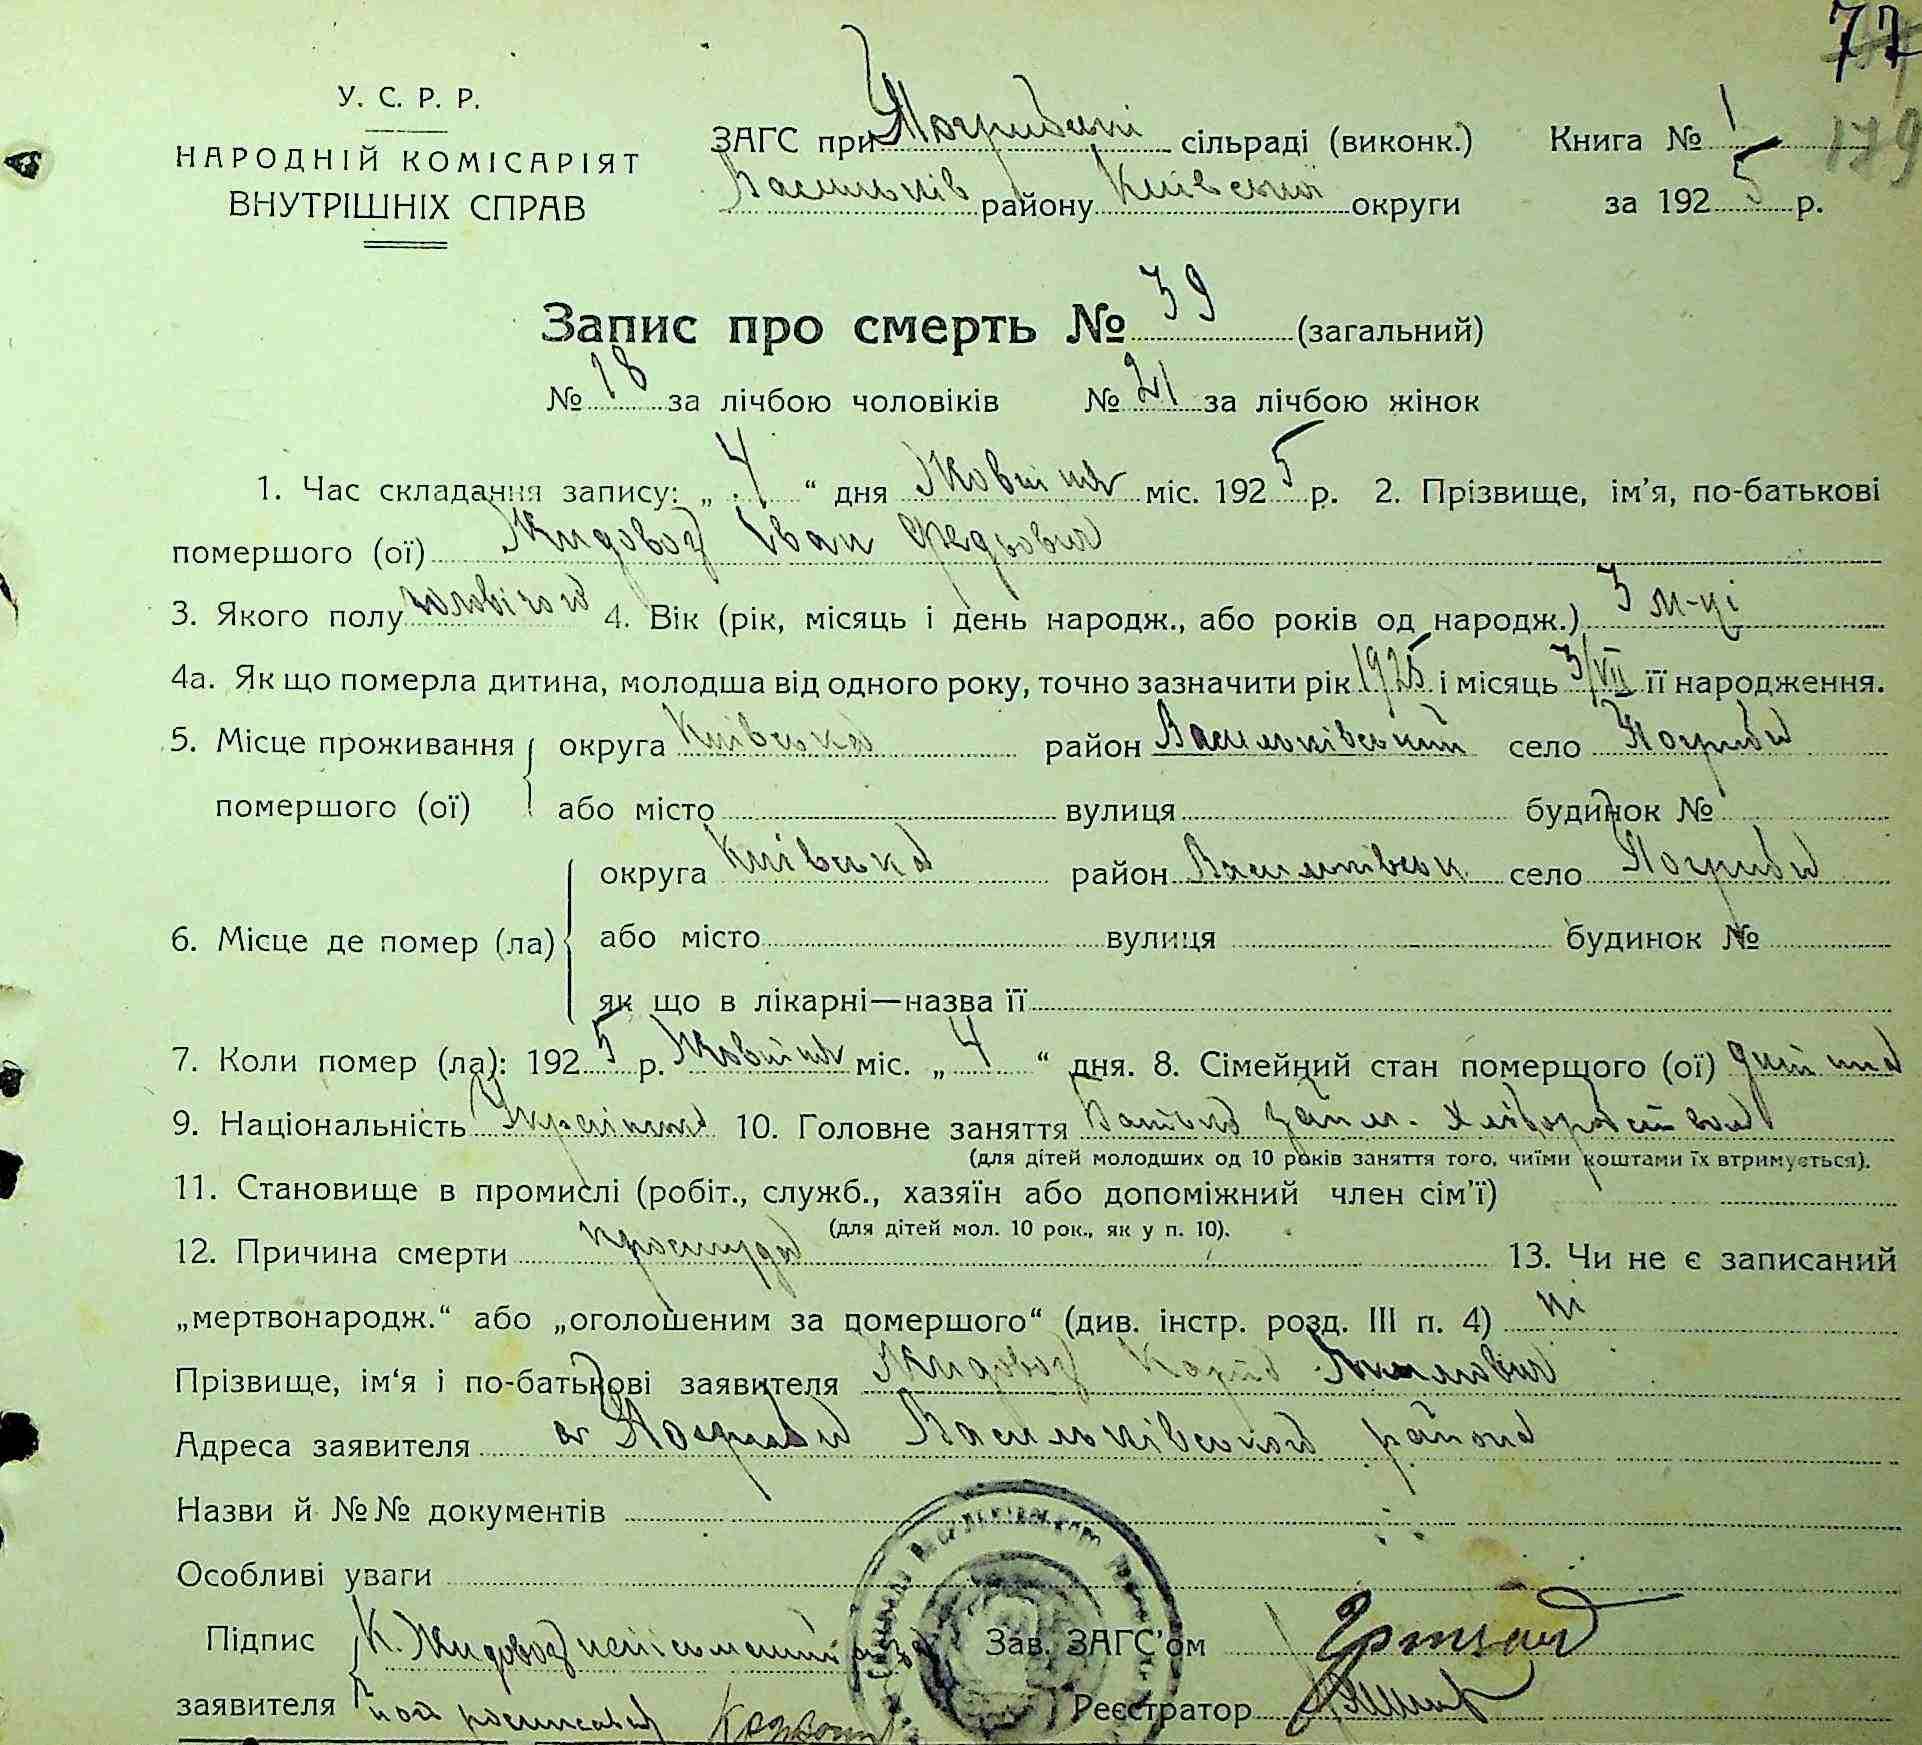 77
179
У. С. Р. Р.
НАРОДНІЙ КОМІСАРІЯТ
ВНУТРІШНІХ СПРАВ
ЗАГС при Погребські сільраді (виконк.) Книга № 1
Васильків району Київської округи за 1925 р.
Запис про смерть № 39 (загальний)
№ 18 за лічбою чоловіків № 21 за лічбою жінок
1. Час складання запису: „4“ дня Жовтня міс. 1925 р. 2. Прізвище, ім'я, по-батькові
помершого (ої) Жидовоз Іван Федьович
3. Якого полу чоловічого 4. Вік (рік, місяць і день народж., або років од народж.) 3 м-ці
4а. Як що померла дитина, молодша від одного року, точно зазначити рік 1925 і місяць 3/VII її народження.
5. Місце проживання округа Київська район Васильківський село Погреби
помершого (ої) або місто вулиця будинок №
округа Київська район Васильківськ село Погреби
6. Місце де помер (ла) або місто вулиця будинок №
як що в лікарні—назва її
7. Коли помер (ла): 1925 р. Жовтня міс. „4“ дня. 8. Сімейний стан помершого (ої) дитина
9. Національність Українець 10. Головне заняття Батько займ. хліборобством
(для дітей молодших од 10 років заняття того, чиїми коштами їх втримується).
11. Становище в промислі (робіт., служб., хазяїн або допоміжний член сім'ї)
(для дітей мол. 10 рок., як у п. 10).
12. Причина смерти простуда 13. Чи не є записаний
„мертвонародж.“ або „оголошеним за помершого“ (див. інстр. розд. III п. 4) ні
Прізвище, ім'я і по-батькові заявителя Жидовоз
Адреса заявителя с. Погреби Васильківського району
Назви й №№ документів
Особливі уваги
Підпис К. Жидовоз неписьменний
заявителя росписався
Зав. ЗАГС'ом
Реєстратор